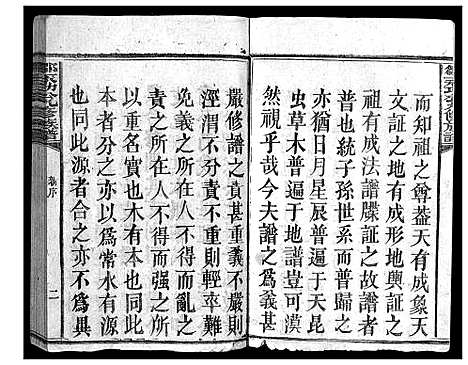 而知祖之尊蓋天有成象天
文証之地有成形地輿証之
祖有成法譜牒証之故譜者
亦猶日月星辰普遍于天昆
虫草木普遍于地譜豈可漠
然視乎哉今夫譜之為義甚
嚴修譜之責甚重義不嚴則
涇渭不分責不重則輕率難
免義之所在人不得而亂之
責之所在人不得而强之所
以重名實也木有本也同此
本者分之亦以為常水有源
也同此源者合之亦不為異
二